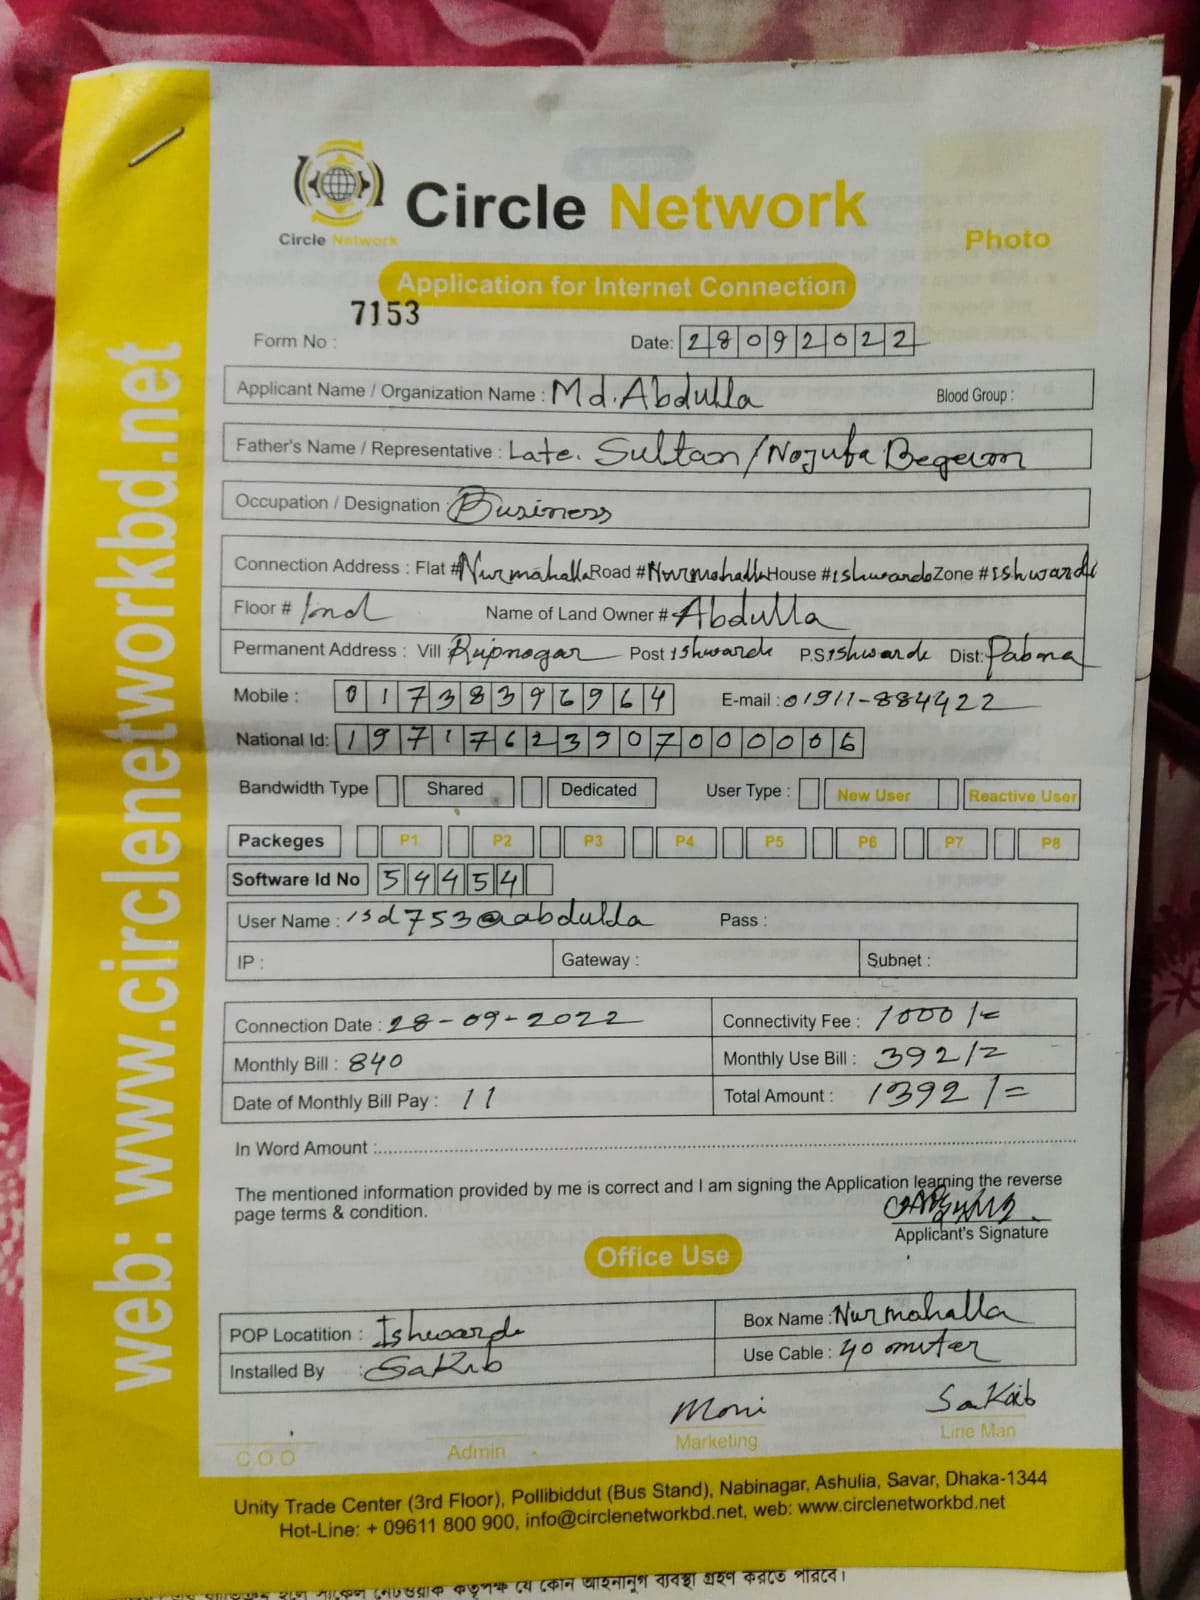 Circle Network
Circle Network
Photo
Application for Internet Connection
7153
Form No :
Date: 28092022
Applicant Name / Organization Name : Md. Abdulla Blood Group :
Father's Name / Representative : Late. Sultan / Nojufa Begeum
Occupation / Designation : Business
Connection Address : Flat # Nurmahalla Road # Nurmahalla House # Ishwarde Zone # Ishwardi
Floor # Name of Land Owner # Abdulla
Permanent Address : Vill Rupnogar Post Ishwarde P.S. Ishwarde Dist: Pabna
Mobile : 01738396964 E-mail : 01911-884422
National Id: 19717623907000006
Bandwidth Type Shared Dedicated User Type : New User Reactive User
Packeges P1 P2 P3 P4 P5 P6 P7 P8
Software Id No 54454
User Name : isd753@abdulla Pass :
IP : Gateway : Subnet :
Connection Date : 28-09-2022 Connectivity Fee : 1000/=
Monthly Bill : 840 Monthly Use Bill : 392/=
Date of Monthly Bill Pay : 11 Total Amount : 1392/=
In Word Amount :
The mentioned information provided by me is correct and I am signing the Application learning the reverse
page terms & condition.
Applicant's Signature
Office Use
POP Locatition : Ishwarde Box Name : Nurmahalla
Installed By : Sakib Use Cable : 40 omiter
Moni Sakib
C O O Admin Marketing Line Man
Unity Trade Center (3rd Floor), Pollibiddut (Bus Stand), Nabinagar, Ashulia, Savar, Dhaka-1344
Hot-Line: + 09611 800 900, info@circlenetworkbd.net, web: www.circlenetworkbd.net
web: www.circlenetworkbd.net
কর্তৃপক্ষ যে কোন আইনানুগ ব্যবস্থা গ্রহণ করতে পারবে।